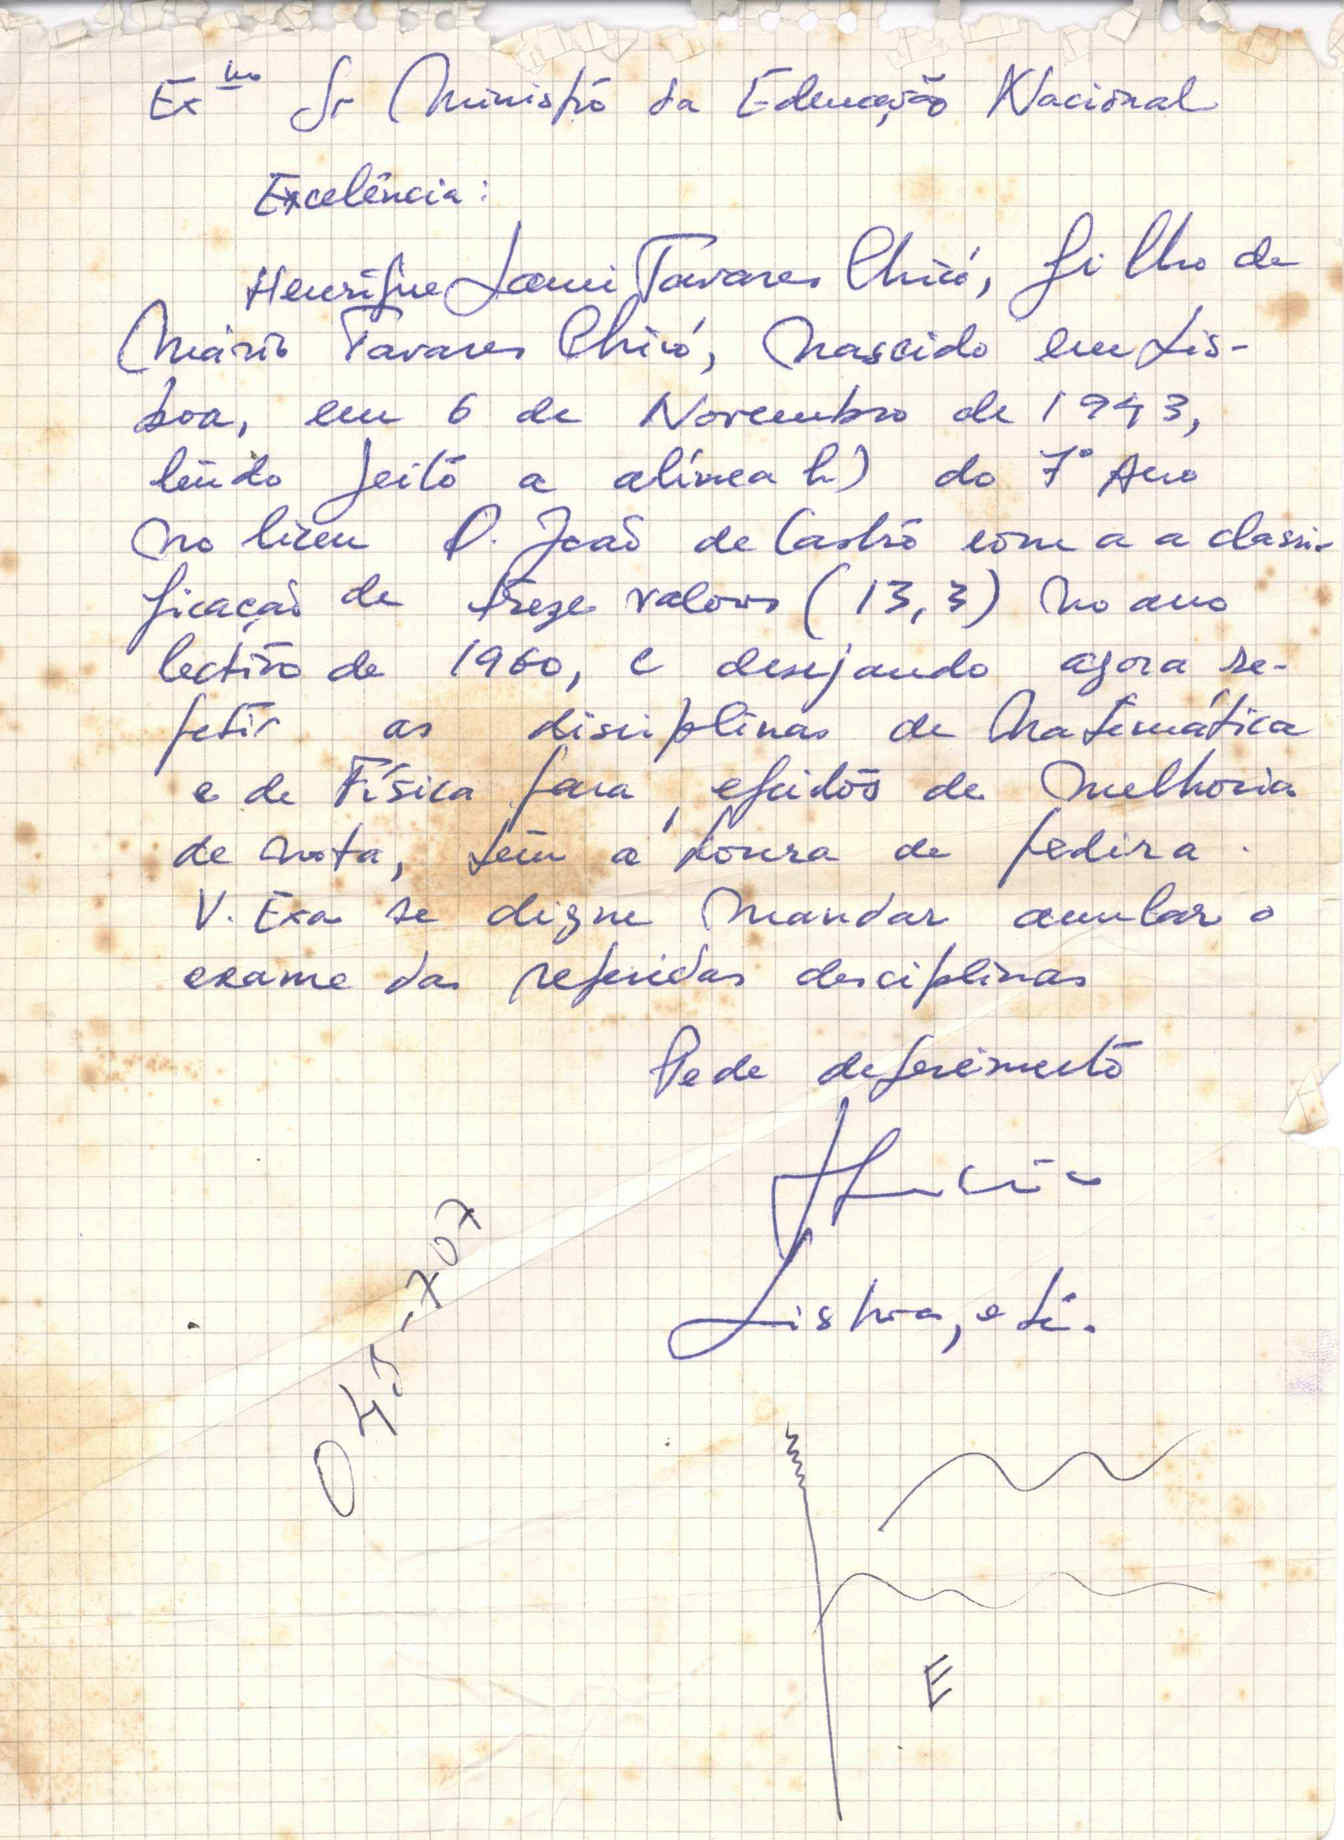 Exmo Sr Ministro da Educação Nacional
Excelência:
Henrique Tavares Chicó, filho de
Mário Tavares Chicó, nascido em Lis-
boa, em 6 de Novembro de 1943,
tendo feito a alínea h) do 7º Ano
no liceu D. João de Castro com a a classi-
ficação de treze valores (13,3) no ano
lectivo de 1960, e desejando agora re-
petir as disciplinas de Matemática
e de Física para efeitos de melhoria
de nota, tem a honra de pedir a
V. Exa se digne mandar anular o
exame das referidas desciplinas
Pede deferimento
Lisboa, etc.
045-707
E